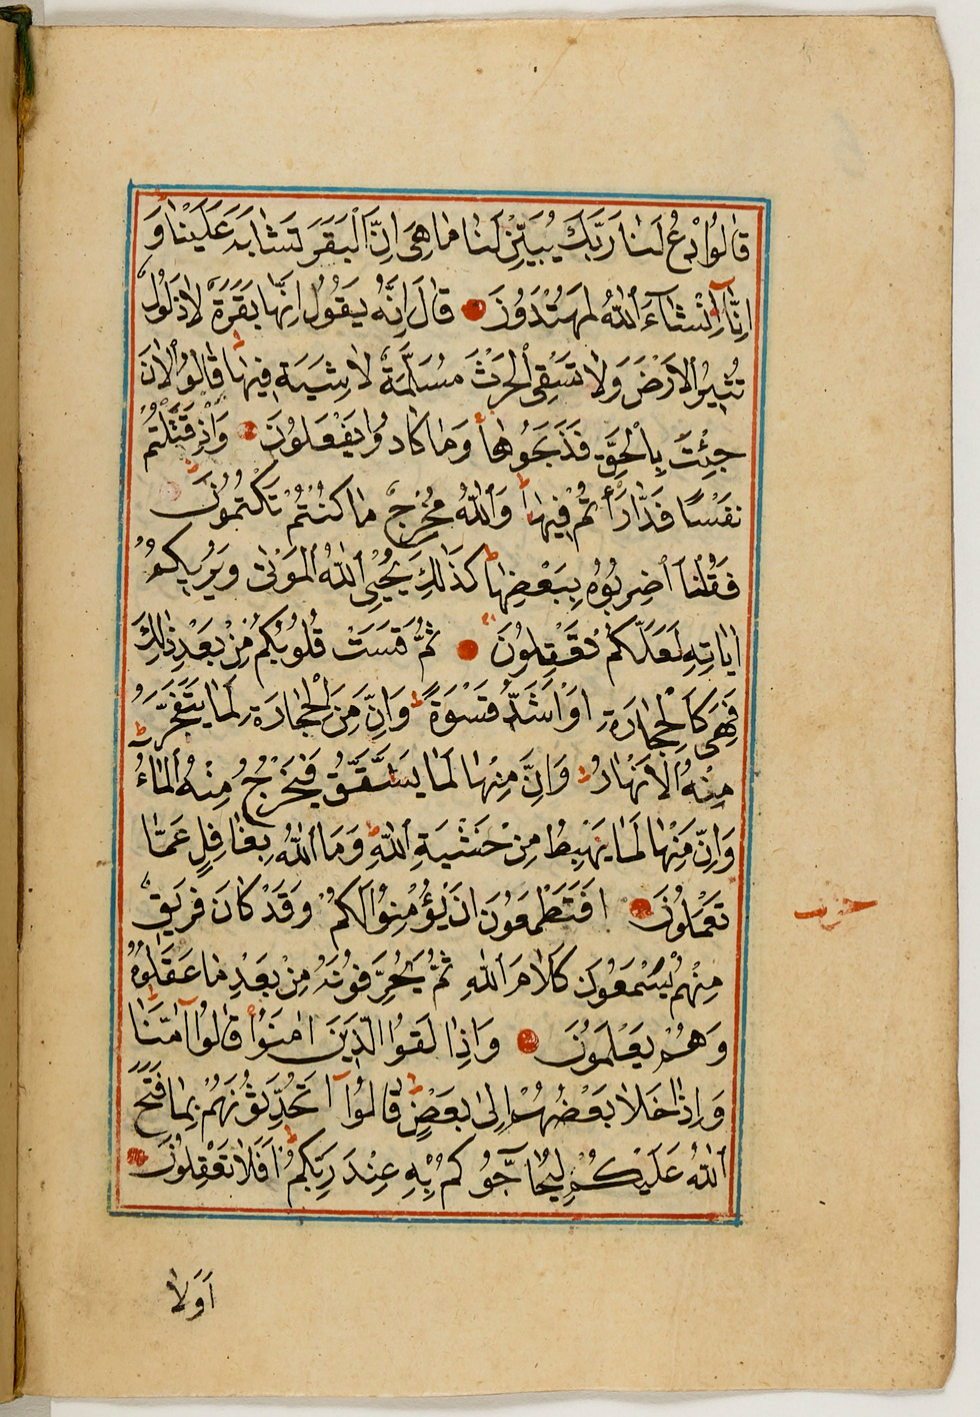 قَالُوا ادْعُ لَنَا رَبَّكَ يُبَيِّنْ لَنَا مَا هِيَ اِنَّ الْبَقَرَ تَشَابَهَ عَلَيْنَا وَ
اِنَّا اِنْ شَاءَ اللّٰهُ لَمُهْتَدُونَ قَالَ اِنَّهُ يَقُولُ اِنَّهَا بَقَرَةٌ لَا ذَلُولٌ
تُثِيرُ الْاَرْضَ وَلَا تَسْقِي الْحَرْثَ مُسَلَّمَةٌ لَا شِيَةَ فِيهَا قَالُوا الْاٰنَ
جِئْتَ بِالْحَقِّ فَذَبَحُوهَا وَمَا كَادُوا يَفْعَلُونَ وَاِذْ قَتَلْتُمْ
نَفْسًا فَادَّارَأْتُمْ فِيهَا وَاللّٰهُ مُخْرِجٌ مَا كُنْتُمْ تَكْتُمُونَ
فَقُلْنَا اضْرِبُوهُ بِبَعْضِهَا كَذٰلِكَ يُحْيِي اللّٰهُ الْمَوْتٰى وَيُرِيكُمْ
اٰيَاتِهِ لَعَلَّكُمْ تَعْقِلُونَ ثُمَّ قَسَتْ قُلُوبُكُمْ مِنْ بَعْدِ ذٰلِكَ
فَهِيَ كَالْحِجَارَةِ اَوْ اَشَدُّ قَسْوَةً وَاِنَّ مِنَ الْحِجَارَةِ لَمَا يَتَفَجَّرُ
مِنْهُ الْاَنْهَارُ وَاِنَّ مِنْهَا لَمَا يَشَّقَّقُ فَيَخْرُجُ مِنْهُ الْمَاءُ
وَاِنَّ مِنْهَا لَمَا يَهْبِطُ مِنْ خَشْيَةِ اللّٰهِ وَمَا اللّٰهُ بِغَافِلٍ عَمَّا
تَعْمَلُونَ اَفَتَطْمَعُونَ اَنْ يُؤْمِنُوا لَكُمْ وَقَدْ كَانَ فَرِيقٌ
حزب
مِنْهُمْ يَسْمَعُونَ كَلَامَ اللّٰهِ ثُمَّ يُحَرِّفُونَهُ مِنْ بَعْدِ مَا عَقَلُوهُ
وَهُمْ يَعْلَمُونَ وَاِذَا لَقُوا الَّذِينَ اٰمَنُوا قَالُوا اٰمَنَّا
وَاِذَا خَلَا بَعْضُهُمْ اِلٰى بَعْضٍ قَالُوا اَتُحَدِّثُونَهُمْ بِمَا فَتَحَ
اللّٰهُ عَلَيْكُمْ لِيُحَاجُّوكُمْ بِهِ عِنْدَ رَبِّكُمْ اَفَلَا تَعْقِلُونَ
اَوَلَا